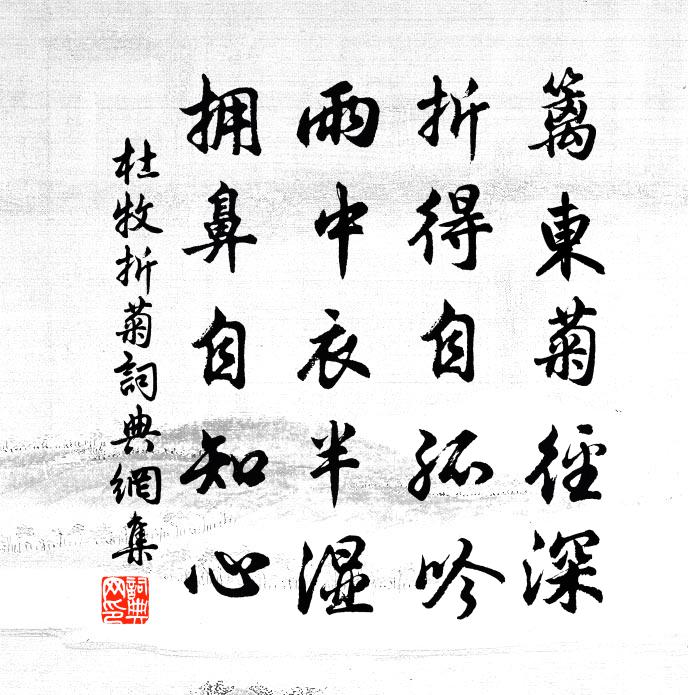 籬東菊徑深
折得自孤吟
雨中衣半湿
拥鼻自知心
杜牧折菊詞典網集
詞典
网印